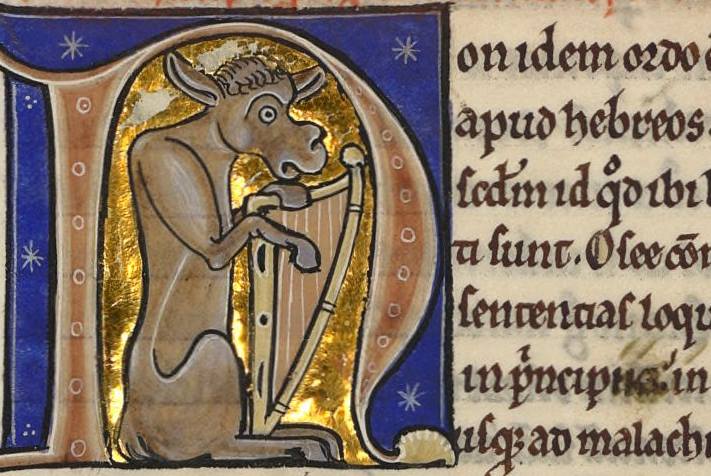 Non idem ordo
apud hebreos
scd̄m id q̊d ibi
ti sunt. Osee cōm
sententias loqu
in p̄ncipi in
usq; ad malachi